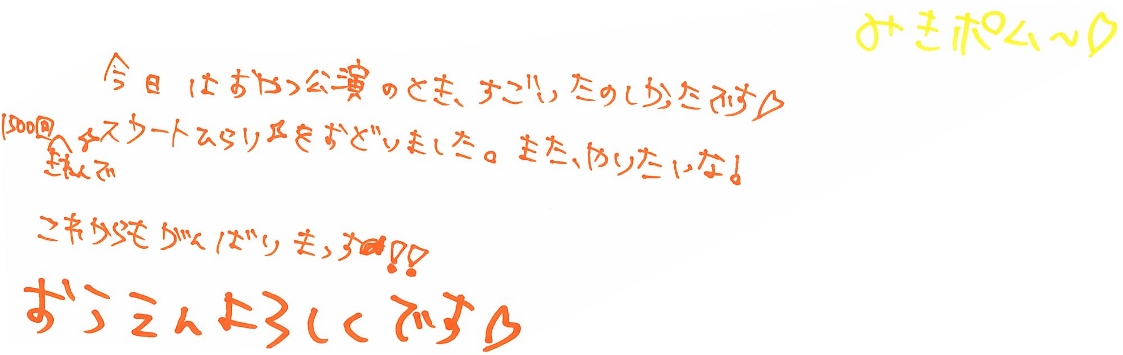 みきポム～♡
今日はおやつ公演のとき、すごいたのしかったです♡
1500回きねんで☆スカートひらり♪をおどりました。また、やりたいな!
これからもがんばりまっす!!
おうえんよろしくです♡